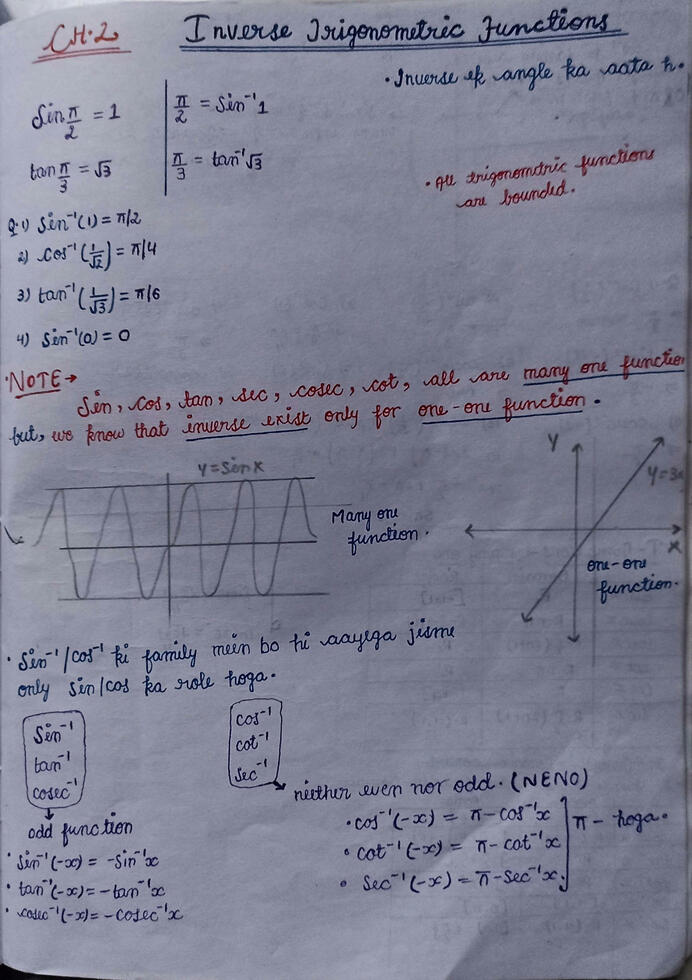 CH.2 Inverse Trigonometric Functions
• Inverse ek angle ka aata h.
Sin π/2 = 1 | π/2 = Sin⁻¹1
tan π/3 = √3 | π/3 = tan⁻¹√3
• All trigonometric functions
are bounded.
Q.1) Sin⁻¹(1) = π/2
2) cos⁻¹(1/√2) = π/4
3) tan⁻¹(1/√3) = π/6
4) Sin⁻¹(0) = 0
• NOTE →
Sin, cos, tan, sec, cosec, cot, all are many one function
but, we know that inverse exist only for one-one function.
Y = Sin X
Many one
function.
Y
Y=3x
X
one-one
function.
• Sin⁻¹/cos⁻¹ ki family mein bo hi aayega jisme
only Sin/cos ka role hoga.
Sin⁻¹
tan⁻¹
cosec⁻¹
odd function
• Sin⁻¹(-x) = -Sin⁻¹x
• tan⁻¹(-x) = -tan⁻¹x
• cosec⁻¹(-x) = -cosec⁻¹x
cos⁻¹
cot⁻¹
sec⁻¹
neither even nor odd. (NENO)
• cos⁻¹(-x) = π - cos⁻¹x
• cot⁻¹(-x) = π - cot⁻¹x
• Sec⁻¹(-x) = π - Sec⁻¹x.
π - hoga.